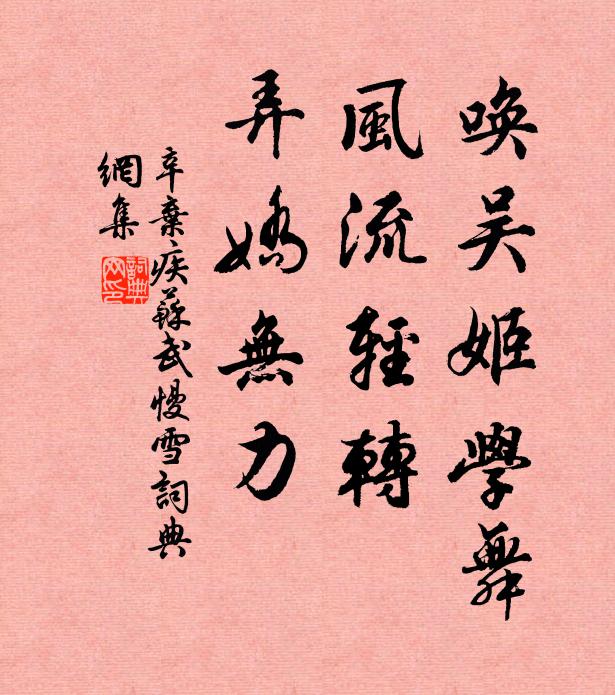 唤吴姬學舞
風流輕轉
弄嬌無力
辛棄疾蘇武慢雪詞典
網集
詞典
网印